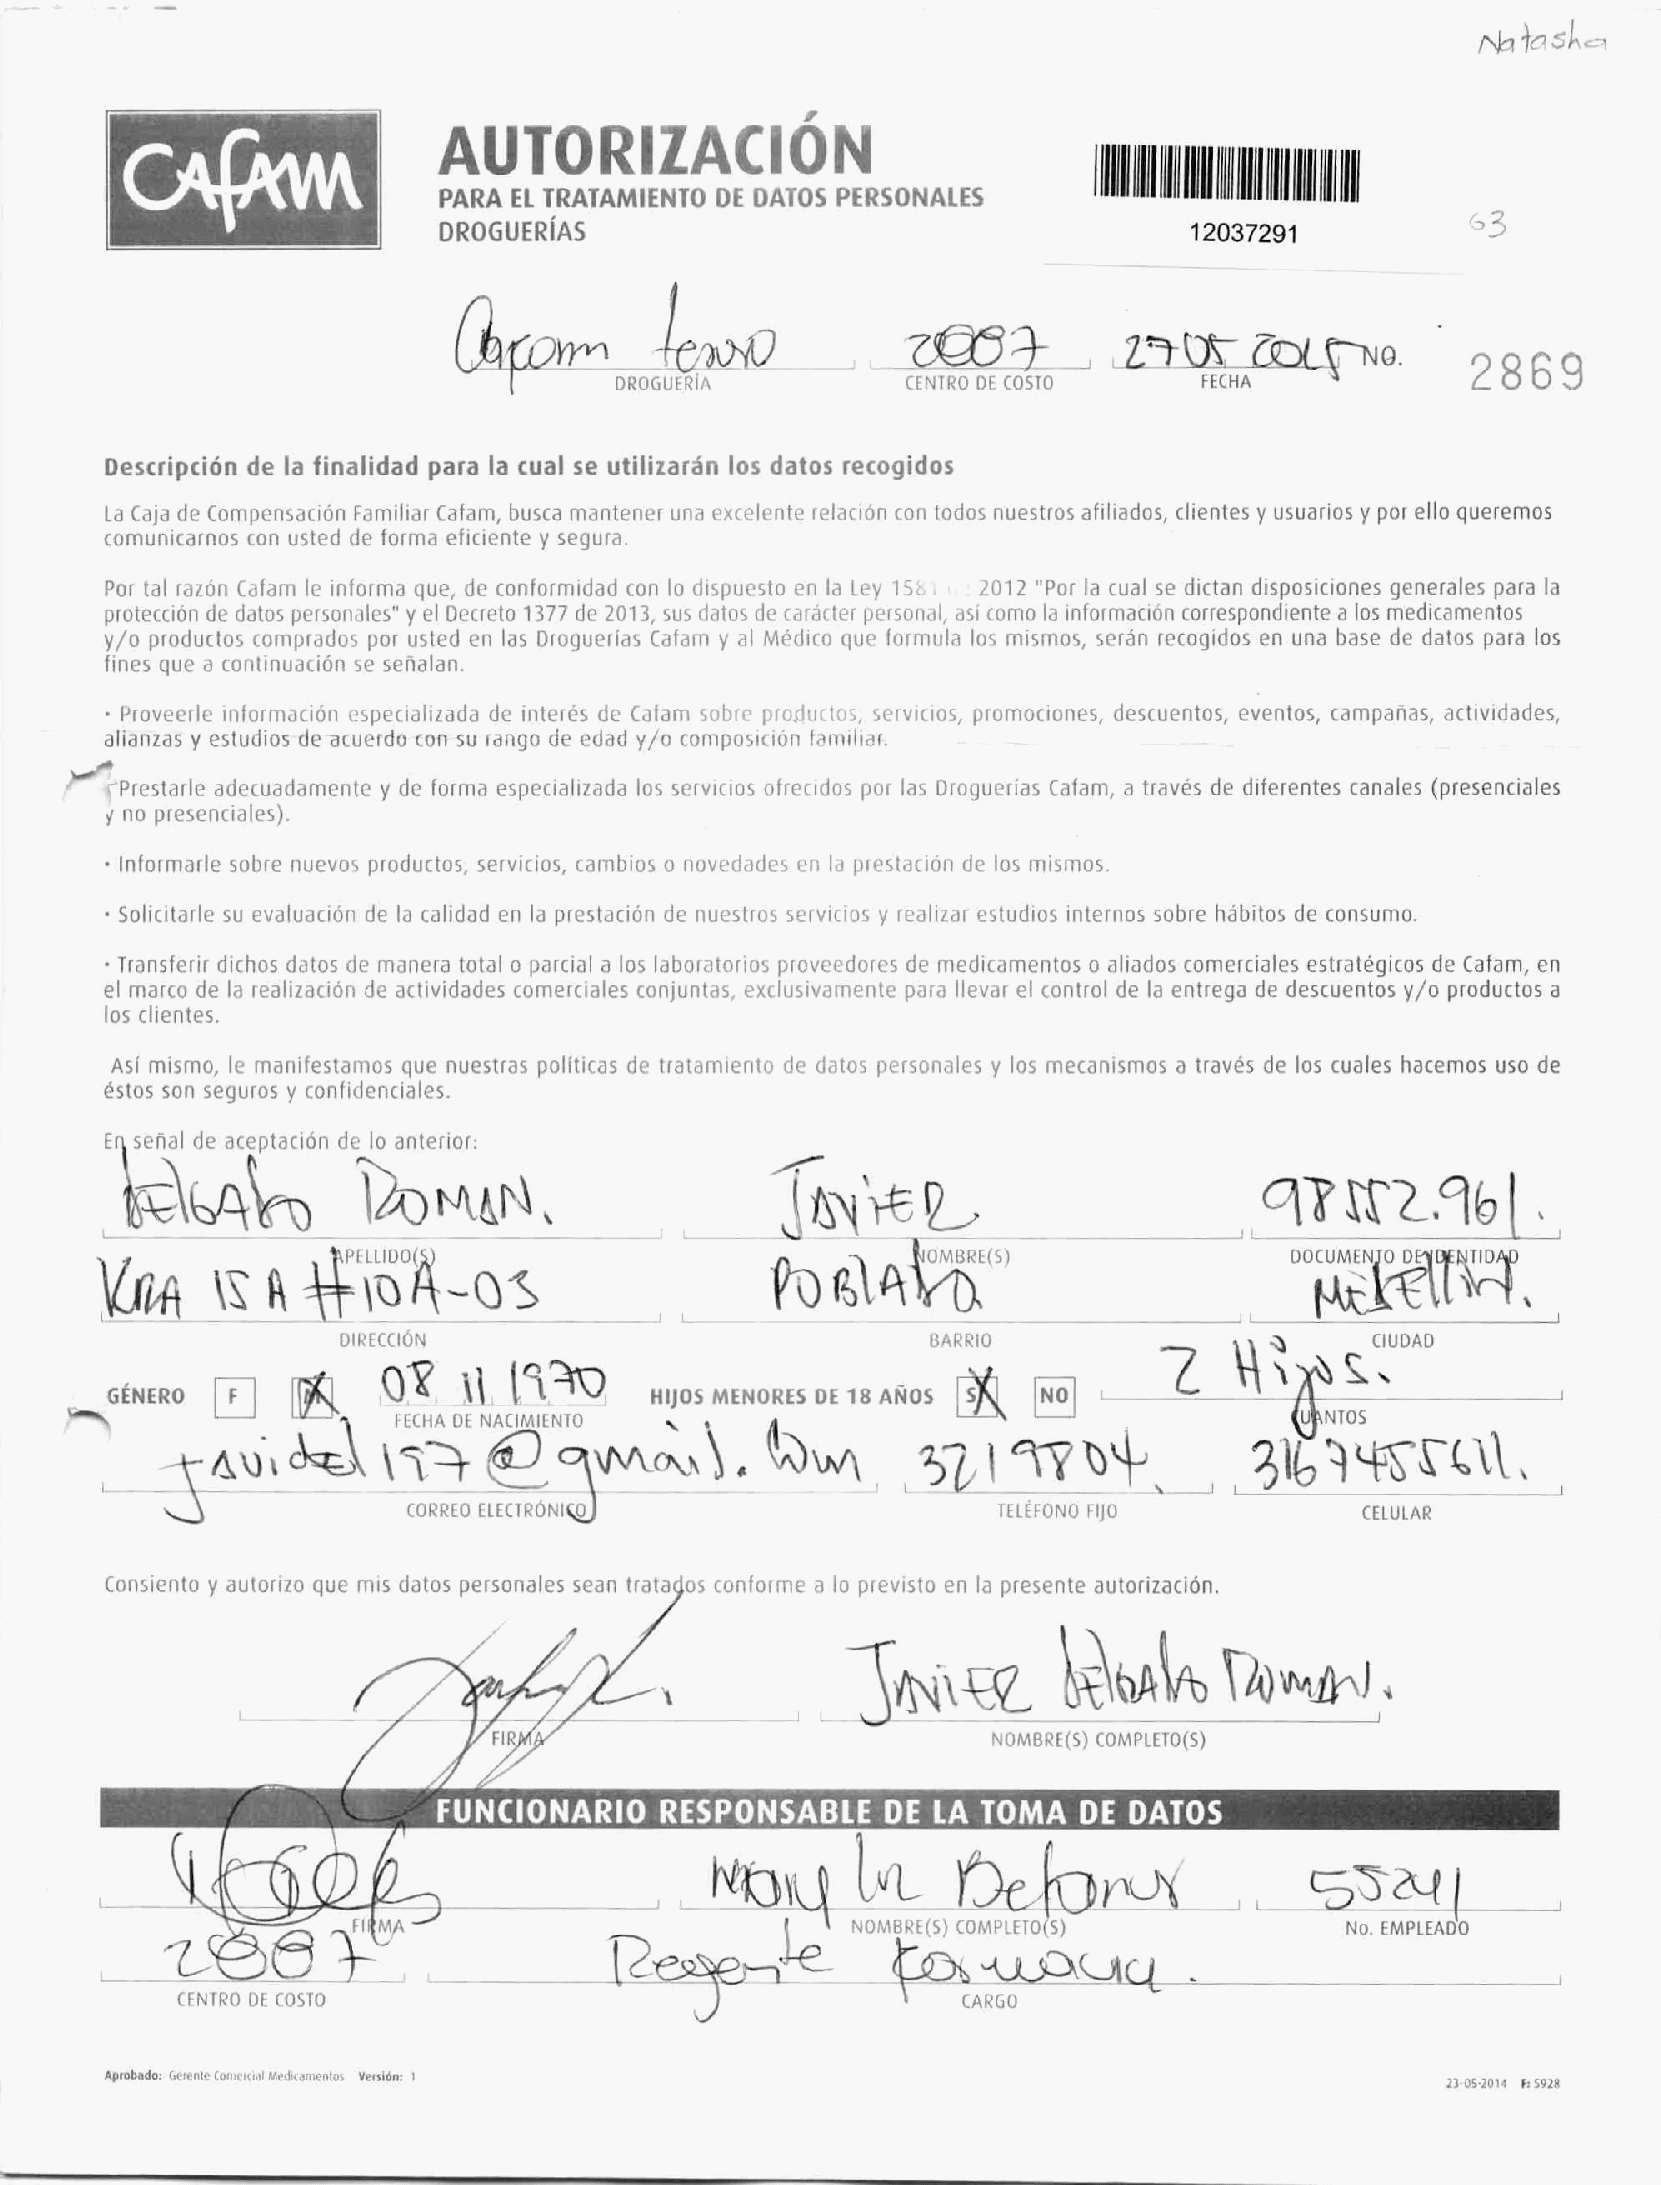 Natasha
CAFAM
AUTORIZACIÓN
PARA EL TRATAMIENTO DE DATOS PERSONALES
DROGUERÍAS
12037291
63
2007 27 05 2015 NO. 2869
DROGUERÍA CENTRO DE COSTO FECHA
Descripción de la finalidad para la cual se utilizarán los datos recogidos
La Caja de Compensación Familiar Cafam, busca mantener una excelente relación con todos nuestros afiliados, clientes y usuarios y por ello queremos
comunicarnos con usted de forma eficiente y segura.
Por tal razón Cafam le informa que, de conformidad con lo dispuesto en la Ley 1581 2012 "Por la cual se dictan disposiciones generales para la
protección de datos personales" y el Decreto 1377 de 2013, sus datos de carácter personal, así como la información correspondiente a los medicamentos
y/o productos comprados por usted en las Droguerías Cafam y al Médico que formula los mismos, serán recogidos en una base de datos para los
fines que a continuación se señalan.
· Proveerle información especializada de interés de Cafam sobre productos, servicios, promociones, descuentos, eventos, campañas, actividades,
alianzas y estudios de acuerdo con su rango de edad y/o composición familiar.
· Prestarle adecuadamente y de forma especializada los servicios ofrecidos por las Droguerías Cafam, a través de diferentes canales (presenciales
y no presenciales).
· Informarle sobre nuevos productos, servicios, cambios o novedades en la prestación de los mismos.
· Solicitarle su evaluación de la calidad en la prestación de nuestros servicios y realizar estudios internos sobre hábitos de consumo.
· Transferir dichos datos de manera total o parcial a los laboratorios proveedores de medicamentos o aliados comerciales estratégicos de Cafam, en
el marco de la realización de actividades comerciales conjuntas, exclusivamente para llevar el control de la entrega de descuentos y/o productos a
los clientes.
Así mismo, le manifestamos que nuestras políticas de tratamiento de datos personales y los mecanismos a través de los cuales hacemos uso de
éstos son seguros y confidenciales.
En señal de aceptación de lo anterior:
DELGADO ROMAN. JAVIER 98552.961.
APELLIDO(S) NOMBRE(S) DOCUMENTO DE IDENTIDAD
KRA 15 A #10A-03 POBLADO MEDELLIN.
DIRECCIÓN BARRIO CIUDAD
GÉNERO F M 08 11 1970 HIJOS MENORES DE 18 AÑOS SI NO 2 Hijos.
FECHA DE NACIMIENTO CUANTOS
javidel197@gmail.com 3219804 3167455611.
CORREO ELECTRÓNICO TELÉFONO FIJO CELULAR
Consiento y autorizo que mis datos personales sean tratados conforme a lo previsto en la presente autorización.
JAVIER DELGADO ROMAN.
FIRMA NOMBRE(S) COMPLETO(S)
FUNCIONARIO RESPONSABLE DE LA TOMA DE DATOS
55241
FIRMA NOMBRE(S) COMPLETO(S) No. EMPLEADO
2007 Regente Farmacia.
CENTRO DE COSTO CARGO
Aprobado: Gerente Comercial Medicamentos Versión: 1
23-05-2014 F: 5928